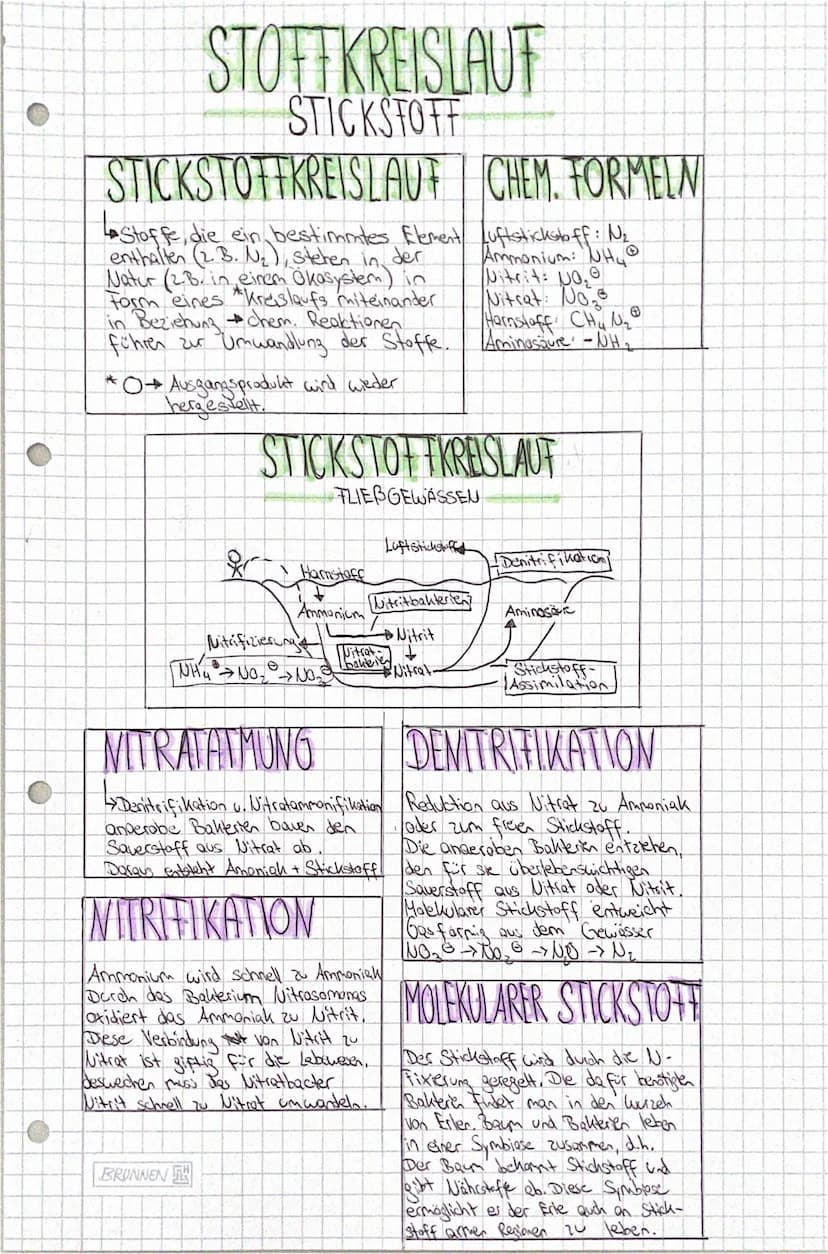 STOFFKREISLAUF
STICKSTOFF
STICKSTOFFKREISLAUF
↳Stoffe, die ein bestimmtes Element
enthalten (z.B. N₂), stehen in der
Natur (z.B. in einem Ökosystem) in
Form eines *Kreislaufs miteinander
in Beziehung → chem. Reaktionen
führen zur Umwandlung der Stoffe.
* ○→ Ausgangsprodukt wird wieder
hergestellt.
CHEM. FORMELN
Luftstickstoff: N₂
Ammonium: NH₄⊕
Nitrit: NO₂⊖
Nitrat: NO₃⊖
Harnstoff: CH₄N₂⊕
Aminosäure: -NH₂
STICKSTOFFKREISLAUF
FLIEßGEWÄSSEN
Luftstickstoff
Denitrifikation
Harnstoff
Nitritbakterien
Ammonium
Aminosäure
Nitrit
Nitrifizierung
Nitrat-
bakterien
NH₄⊕→NO₂⊖→NO₃⊖
Nitrat
Stickstoff-
Assimilation
NITRATATMUNG
↳Denitrifikation u. Nitratammonifikation
anaerobe Bakterien bauen den
Sauerstoff aus Nitrat ab.
Daraus entsteht Amoniak + Stickstoff
NITRIFIKATION
Ammonium wird schnell zu Ammoniak
Durch das Bakterium Nitrosomonas
oxidiert das Ammoniak zu Nitrit.
Diese Verbindung von Nitrit zu
Nitrat ist giftig für die Lebewesen,
deswechen muss das Nitratbacter
Nitrit schnell zu Nitrat umwandeln.
DENITRIFIKATION
Reduktion aus Nitrat zu Ammoniak
oder zum freien Stickstoff.
Die anaeroben Bakterien entziehen,
den für sie überlebenswichtigen
Sauerstoff aus Nitrat oder Nitrit.
Molekularer Stickstoff entweicht
Gasförmig aus dem Gewässer
NO₃⊖→NO₂⊖→NO→N₂
MOLEKULARER STICKSTOFF
Der Stickstoff wird durch die N-
Fixierung geregelt. Die dafür benötigten
Bakterien findet man in den Wurzeln
von Erlen. Baum und Bakterien leben
in einer Symbiose zusammen, d.h.
Der Baum bekommt Stickstoff und
gibt Nährstoffe ab. Diese Symbiose
ermöglicht es der Erle auch an Stick-
stoff armen Regionen zu leben.
BRUNNEN